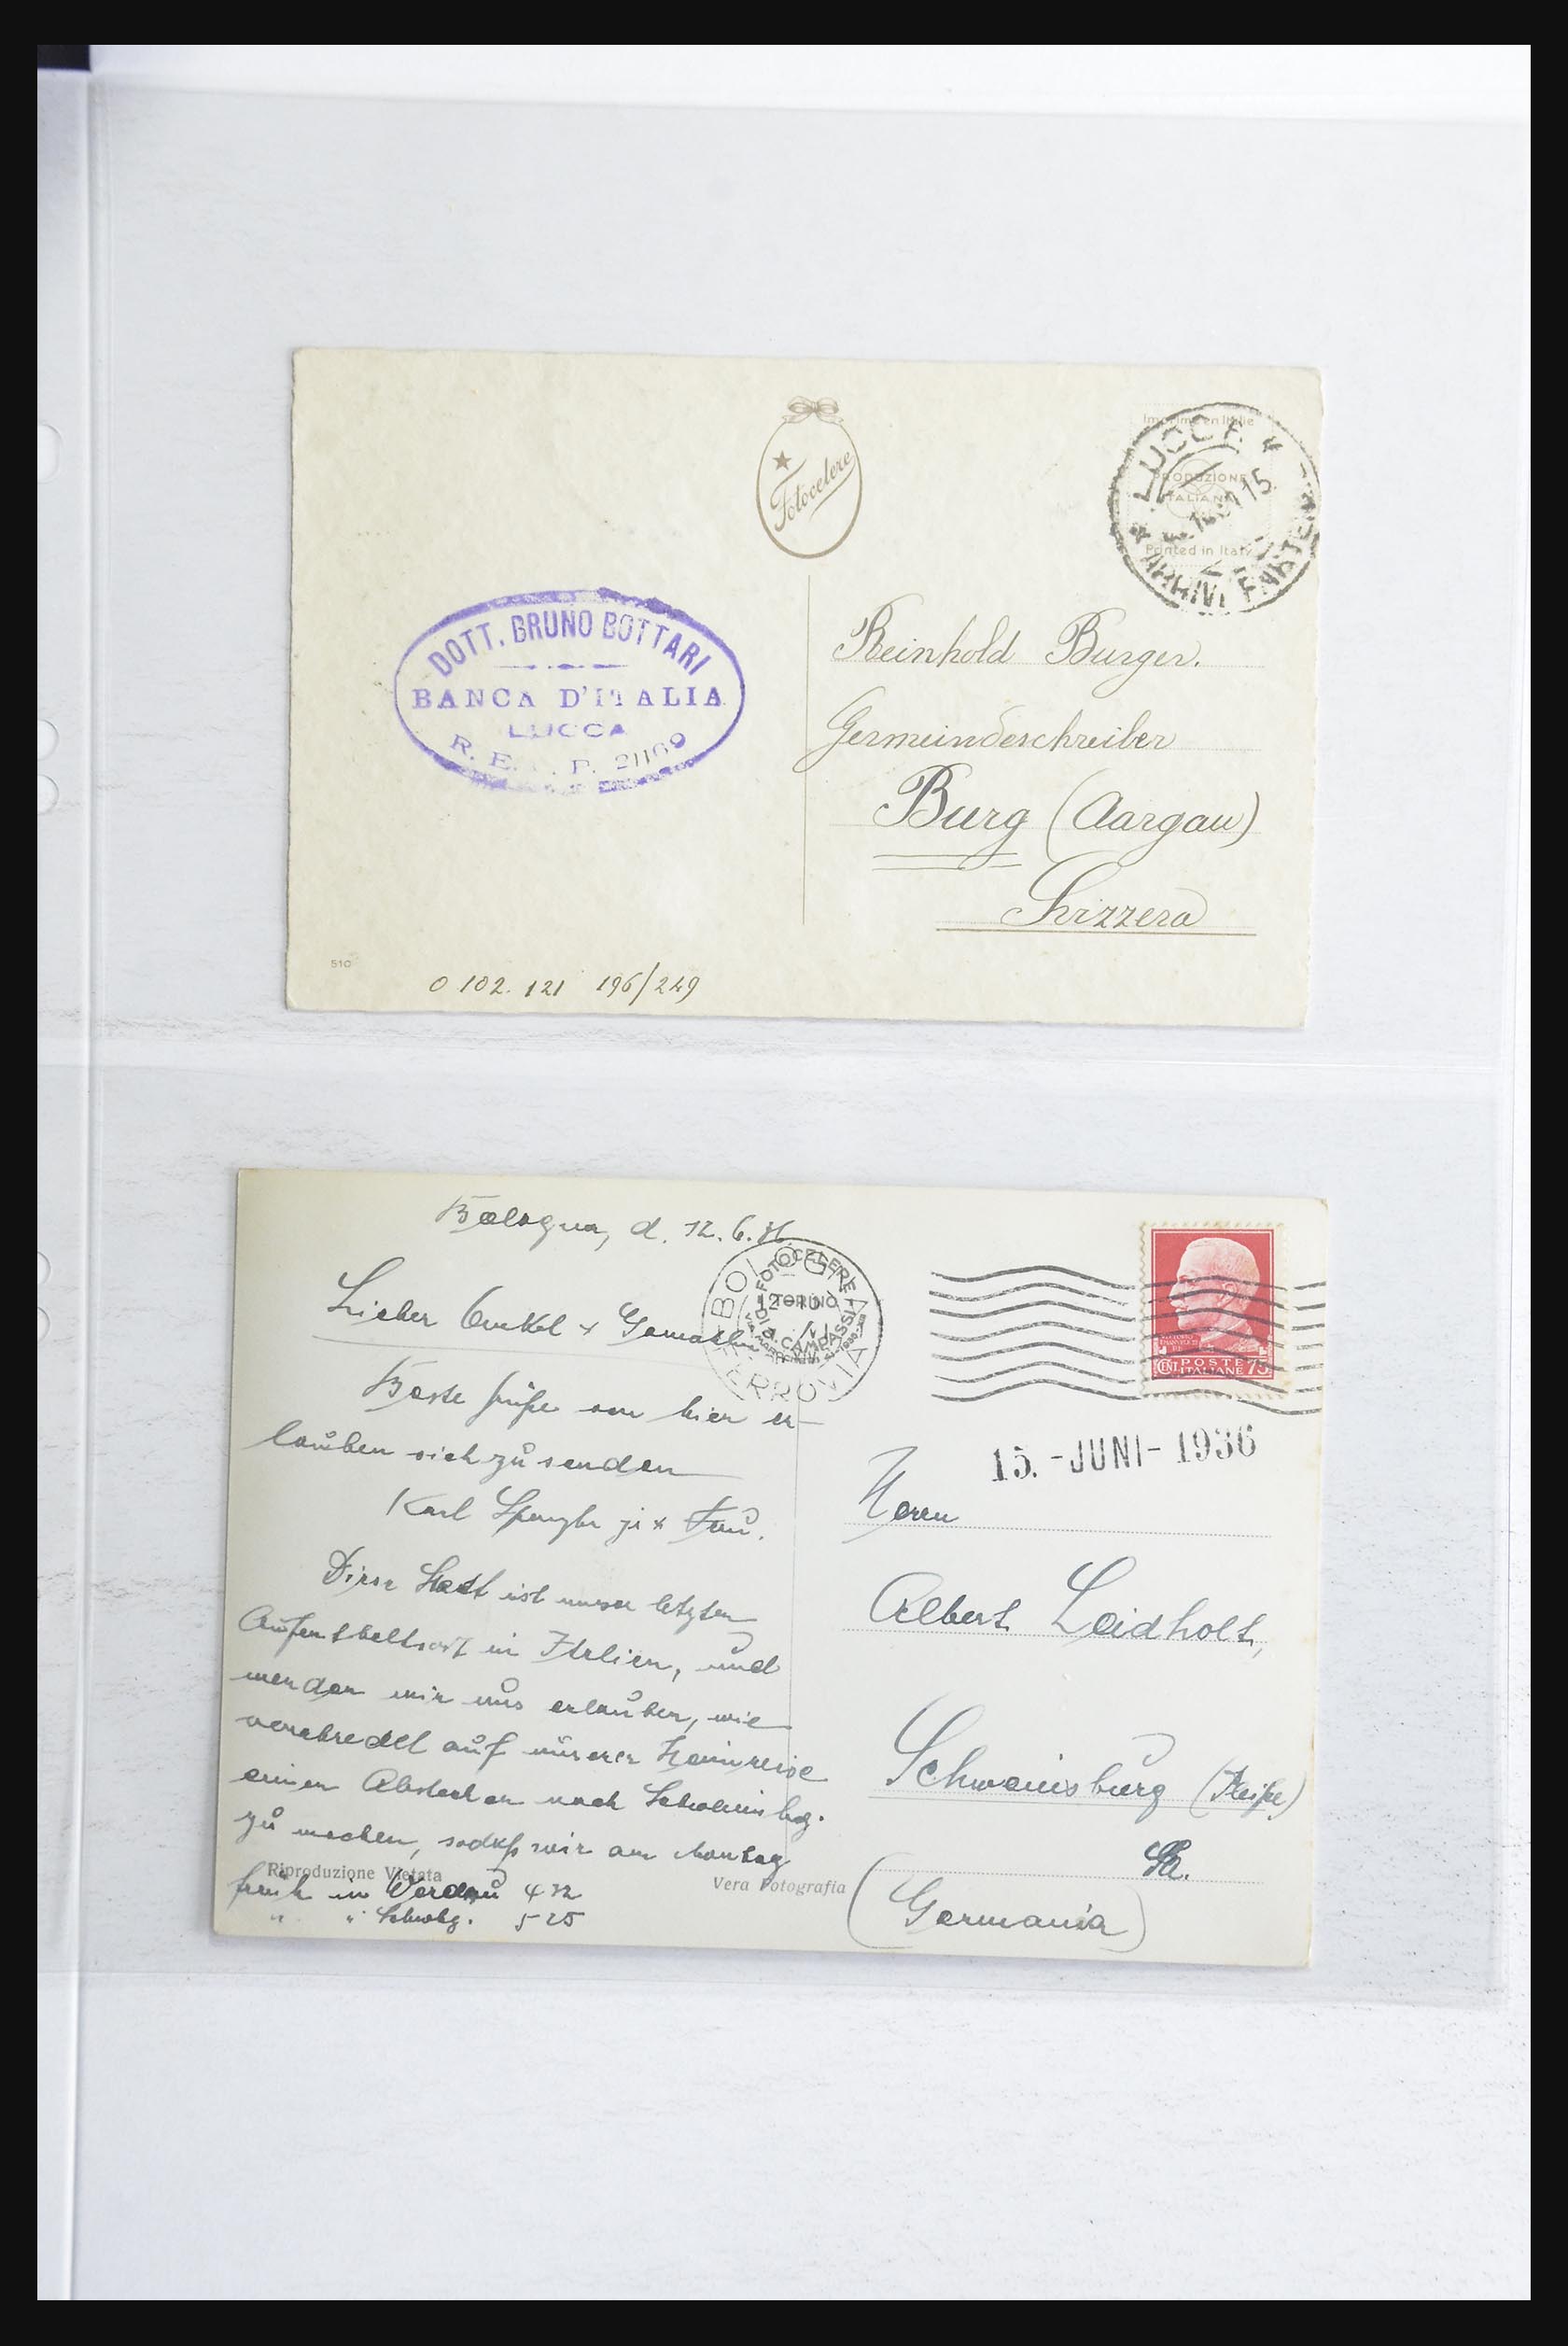 Imprimé en Italie
LUCCA
PRODUZIONE
ITALIANA
Printed in Italy
ARRIVI
Fotocelere
DOTT. BRUNO BOTTARI
BANCA D'ITALIA
LUCCA
R. E. P. 21169
Reinhold Burger.
Gemeindeschreiber
Burg (Aargau)
Svizzera
510
0 102. 121 196/249
Bologna, d. 12. 6. 36.
Lieber Onkel + Gemahlin
Beste Grüße von hier er-
lauben sich zu senden
Karl Spengler jr + Frau.
Diese Stadt ist unser letzter
Aufenthaltsort in Italien, und
werden wir uns erlauben, wie
verabredet auf unserer Heimreise
einen Abstecher nach Schweinsbg.
zu machen, sodaß wir am Montag
früh in Werdau 4 32
" " Schwbg. 5 25
Riproduzione Vietata
Vera Fotografia
BOLOGNA
FERROVIA
FOTOCELERE
TORINO
DI A. CAMPASSI
POSTE
ITALIANE
CENT 75
15. - JUNI - 1936
Herrn
Albert Leidholt,
Schweinsburg (Pleiße)
Sa.
(Germania)